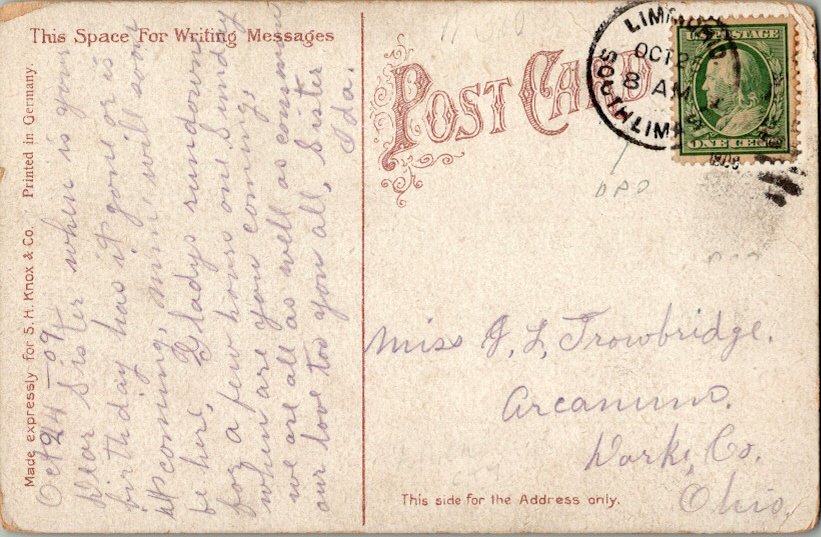 This Space For Writing Messages
Oct 24 - 09
Dear Sister when is your
birthday has it gone or is
upcoming, mm, will soon
be here, Gladys rundown
for a few hours one Sunday
when are you coming,
we are all as well as common
our love too you all, Sister
Ida.
Made expressly for S. H. Knox & Co. Printed in Germany.
POST CARD
SOUTH LIMA
OCT 2
8 AM
U.S. POSTAGE
ONE CENT
DPO
Miss J. L. Trowbridge.
Arcanum.
Darke, Co.
Ohio,
This side for the Address only.